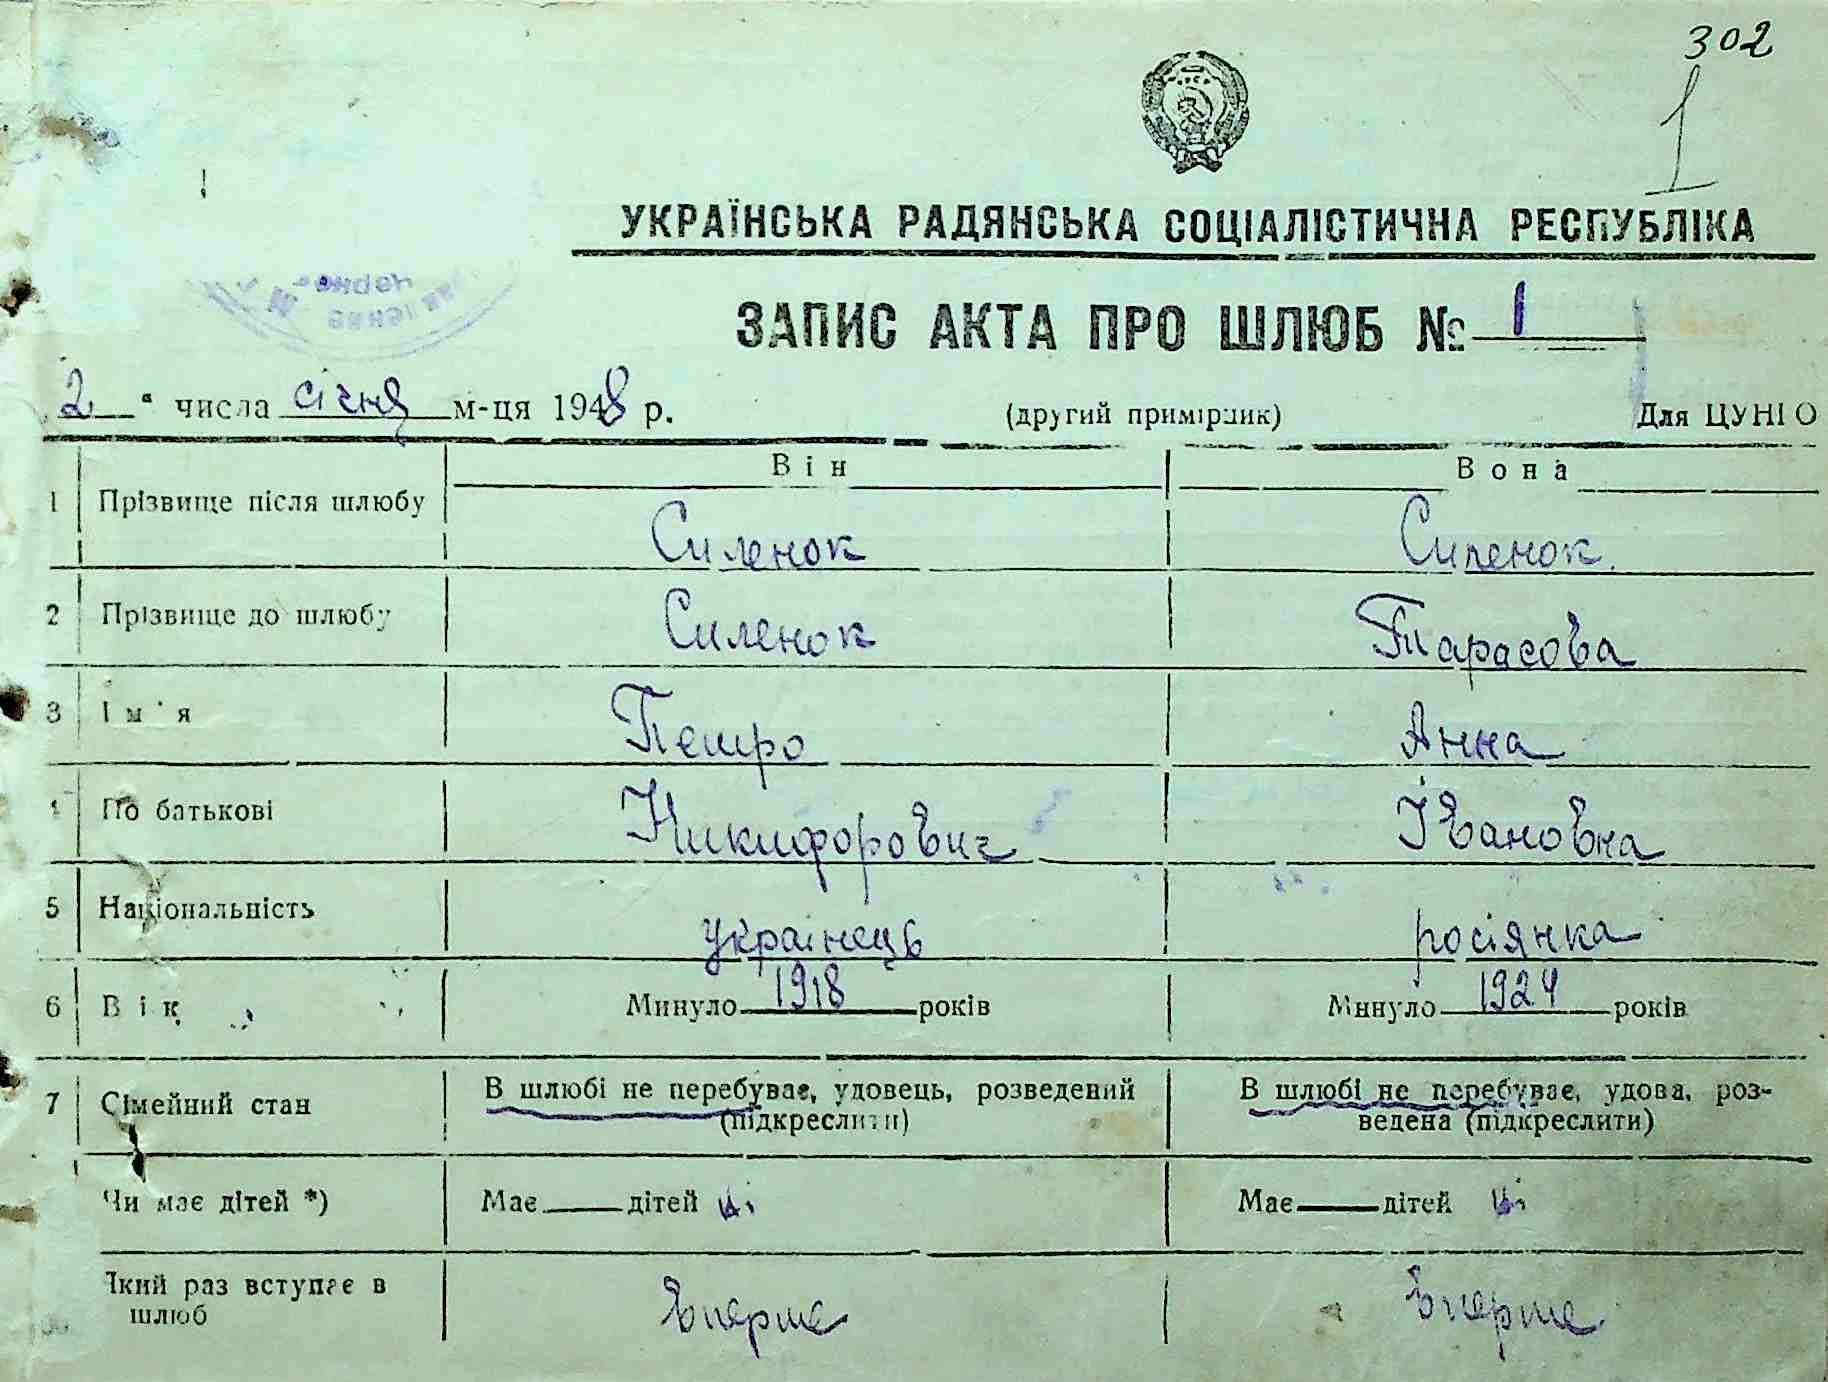 302
1
УКРАЇНСЬКА РАДЯНСЬКА СОЦІАЛІСТИЧНА РЕСПУБЛІКА
ЗАПИС АКТА ПРО ШЛЮБ № 1
2 " числа січня м-ця 1948 р. (другий примірник) Для ЦУНГО
Він Вона
1 Прізвище після шлюбу Силенок Силенок.
2 Прізвище до шлюбу Силенок Тарасова
3 Ім'я Петро Анна
4 По батькові Никифорович Івановна
5 Національність українець росіянка
6 Вік Минуло 1918 років Минуло 1924 років
7 Сімейний стан В шлюбі не перебуває, удовець, розведений (підкреслити) В шлюбі не перебуває, удова, роз-
ведена (підкреслити)
Чи має дітей *) Має дітей ні Має дітей ні
Який раз вступає в шлюб Вперше Вперше